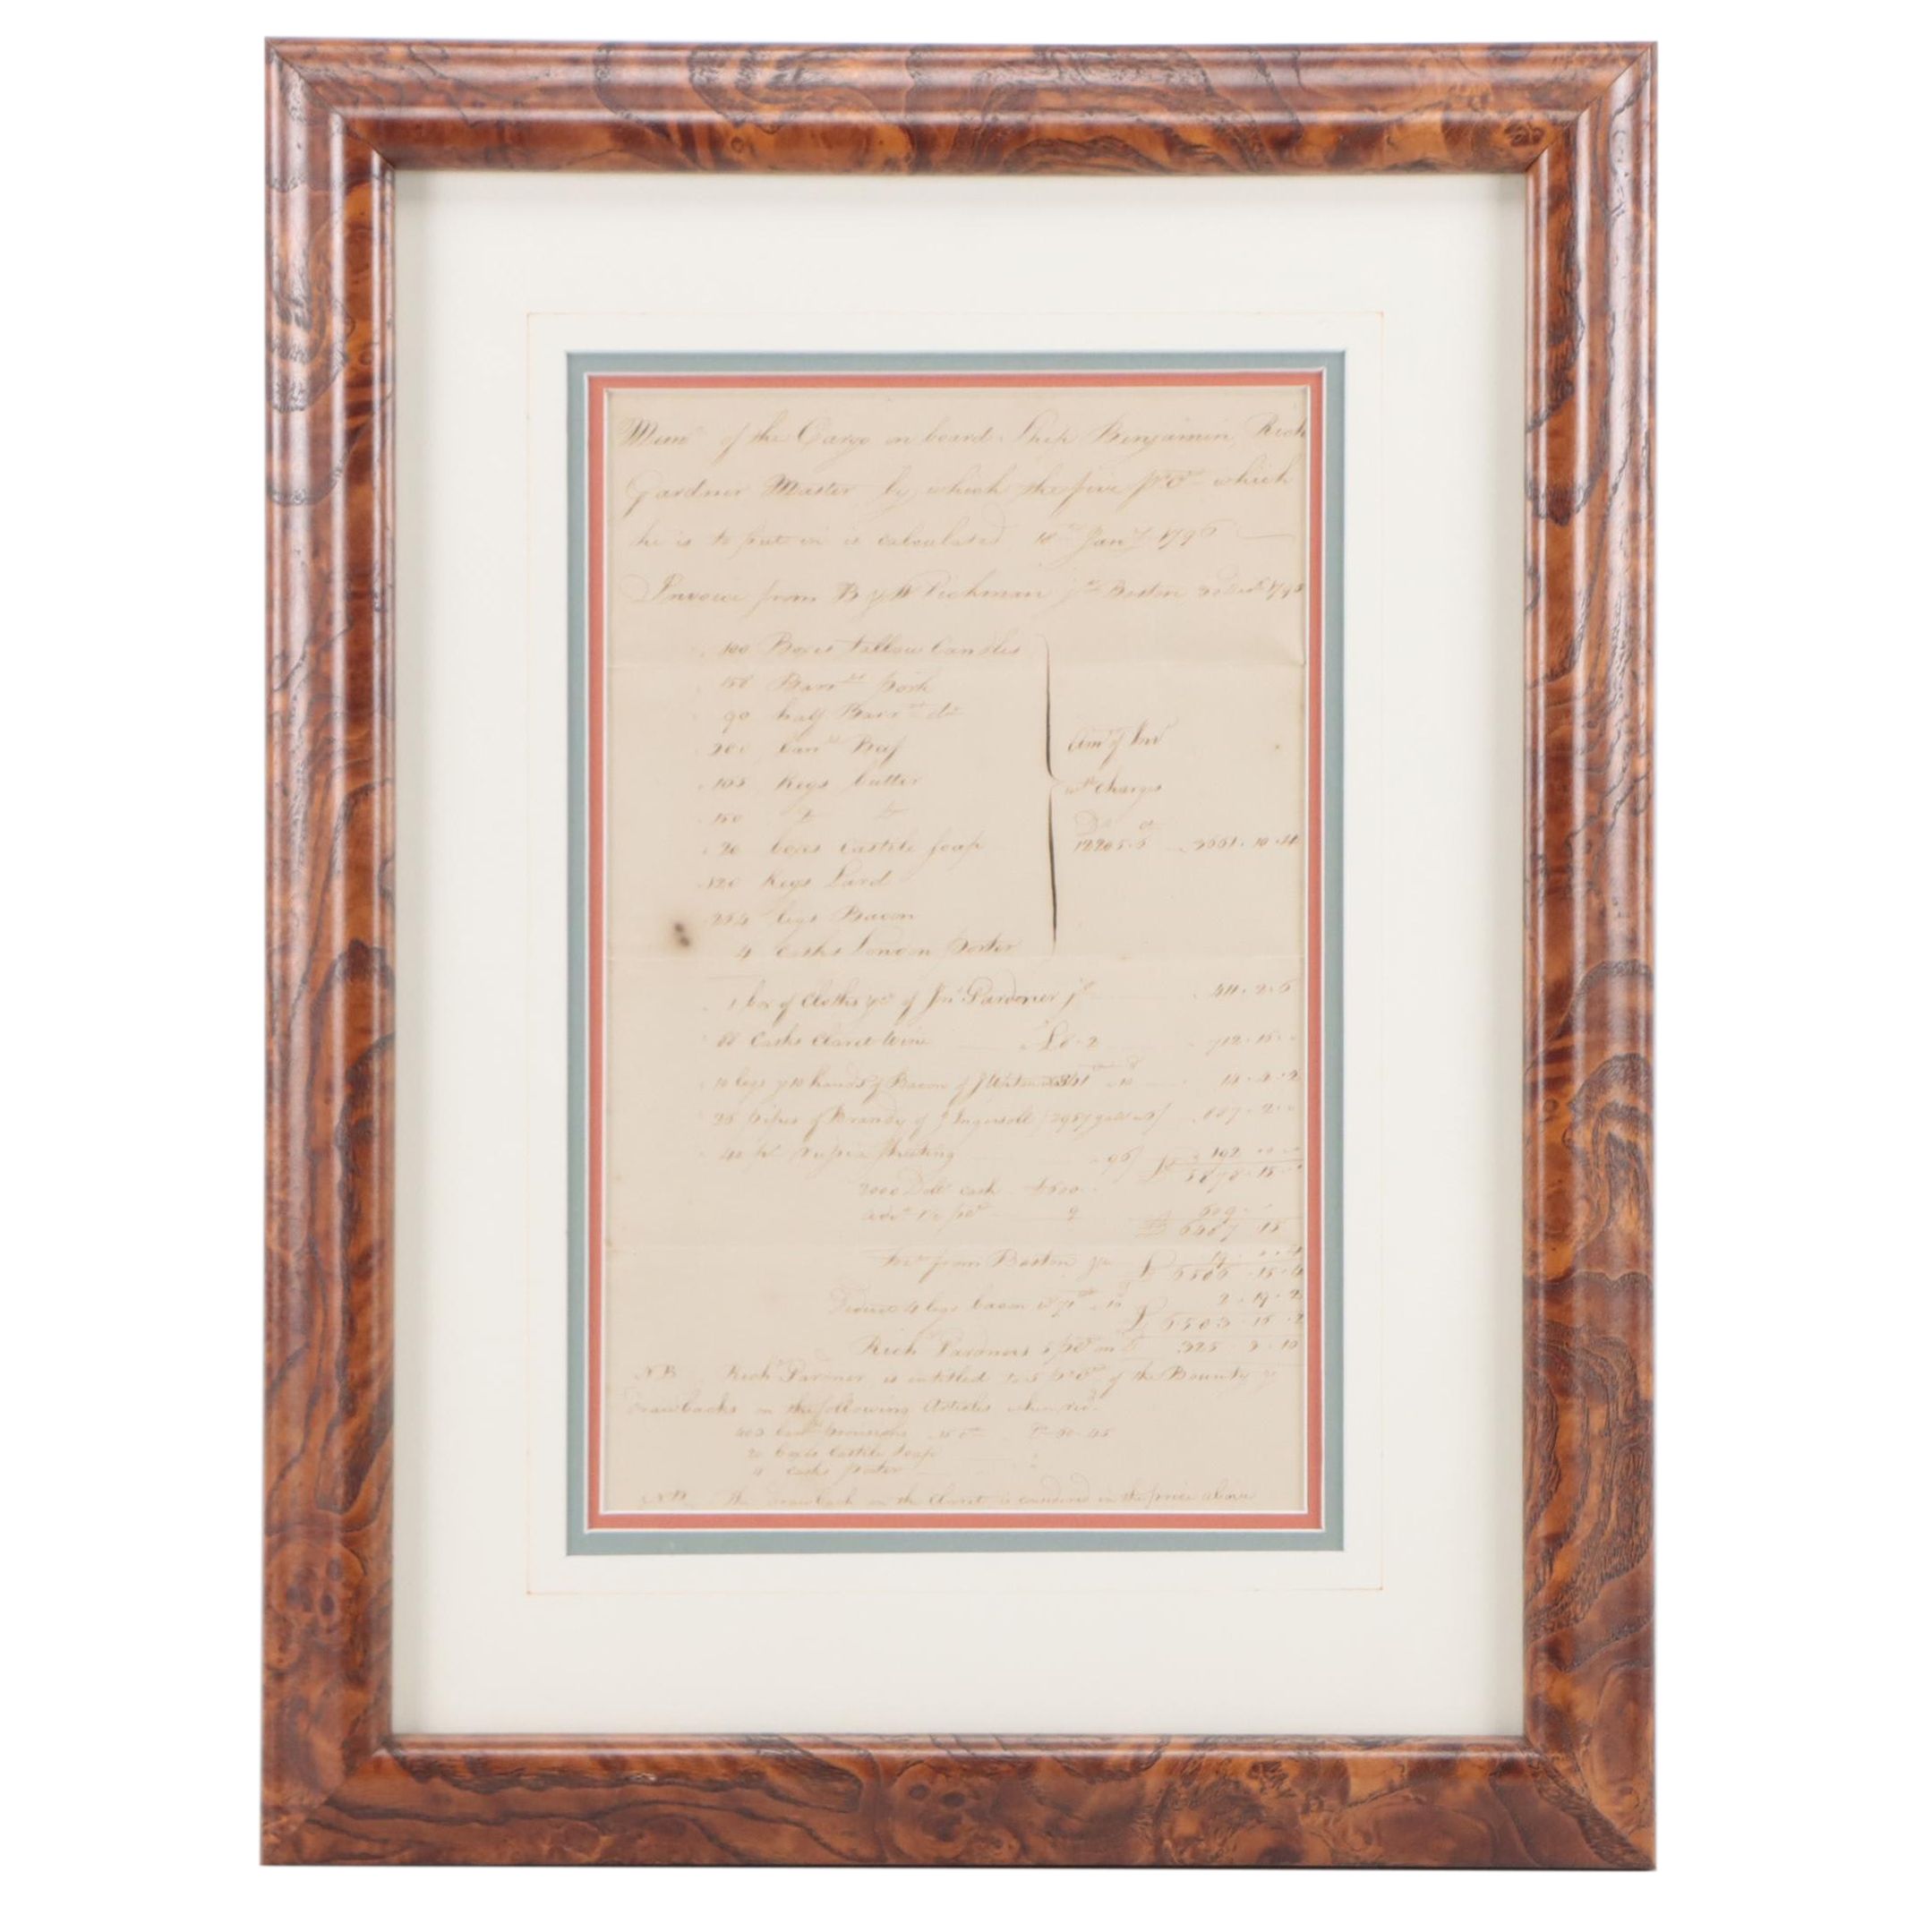 Mem° of the Cargo on board Ship Benjamin, Rich
Gardner Master by which the five p Ct which
he is to put in is calculated 18 Jany 1796
Invoice from B & Richman jr Boston
400 Boxes tallow Candles
150 Barrls pork
90 half Barrls do
200 Barrls Beef
105 Kegs butter
150 do do
20 boxes Castile Soap
120 Kegs Lard
254 legs Bacon
4 casks London porter
Amt of Invo
with Charges
Ds ct
12205.5 3661.10.
1 box of Cloths of Jno Gardner jr 2.6
88 Casks Claret Wine £8.2 712.15.
10 legs & 10 hands of Bacon of J 14.4.2
of Brandy of J Ingersoll 2957 galls 887.2.
40 ps Russia Sheeting 96/ 192
£ 5878.15.
2000 Dolls cash £600
9 609
£ 6487 15
from Boston 19
£ 6506.15.
Deduct 4 legs bacon 2.19.2
£ 6503.15.2
Richd Gardners 5 p Ct on 325.3.10
NB Richd Gardner is entitled to 5 p Ct of the Bounty &
Drawbacks on the following Articles when
provisions
20 boxes Castile Soap
4 casks porter
NB the drawback on the Claret is considered in the price above